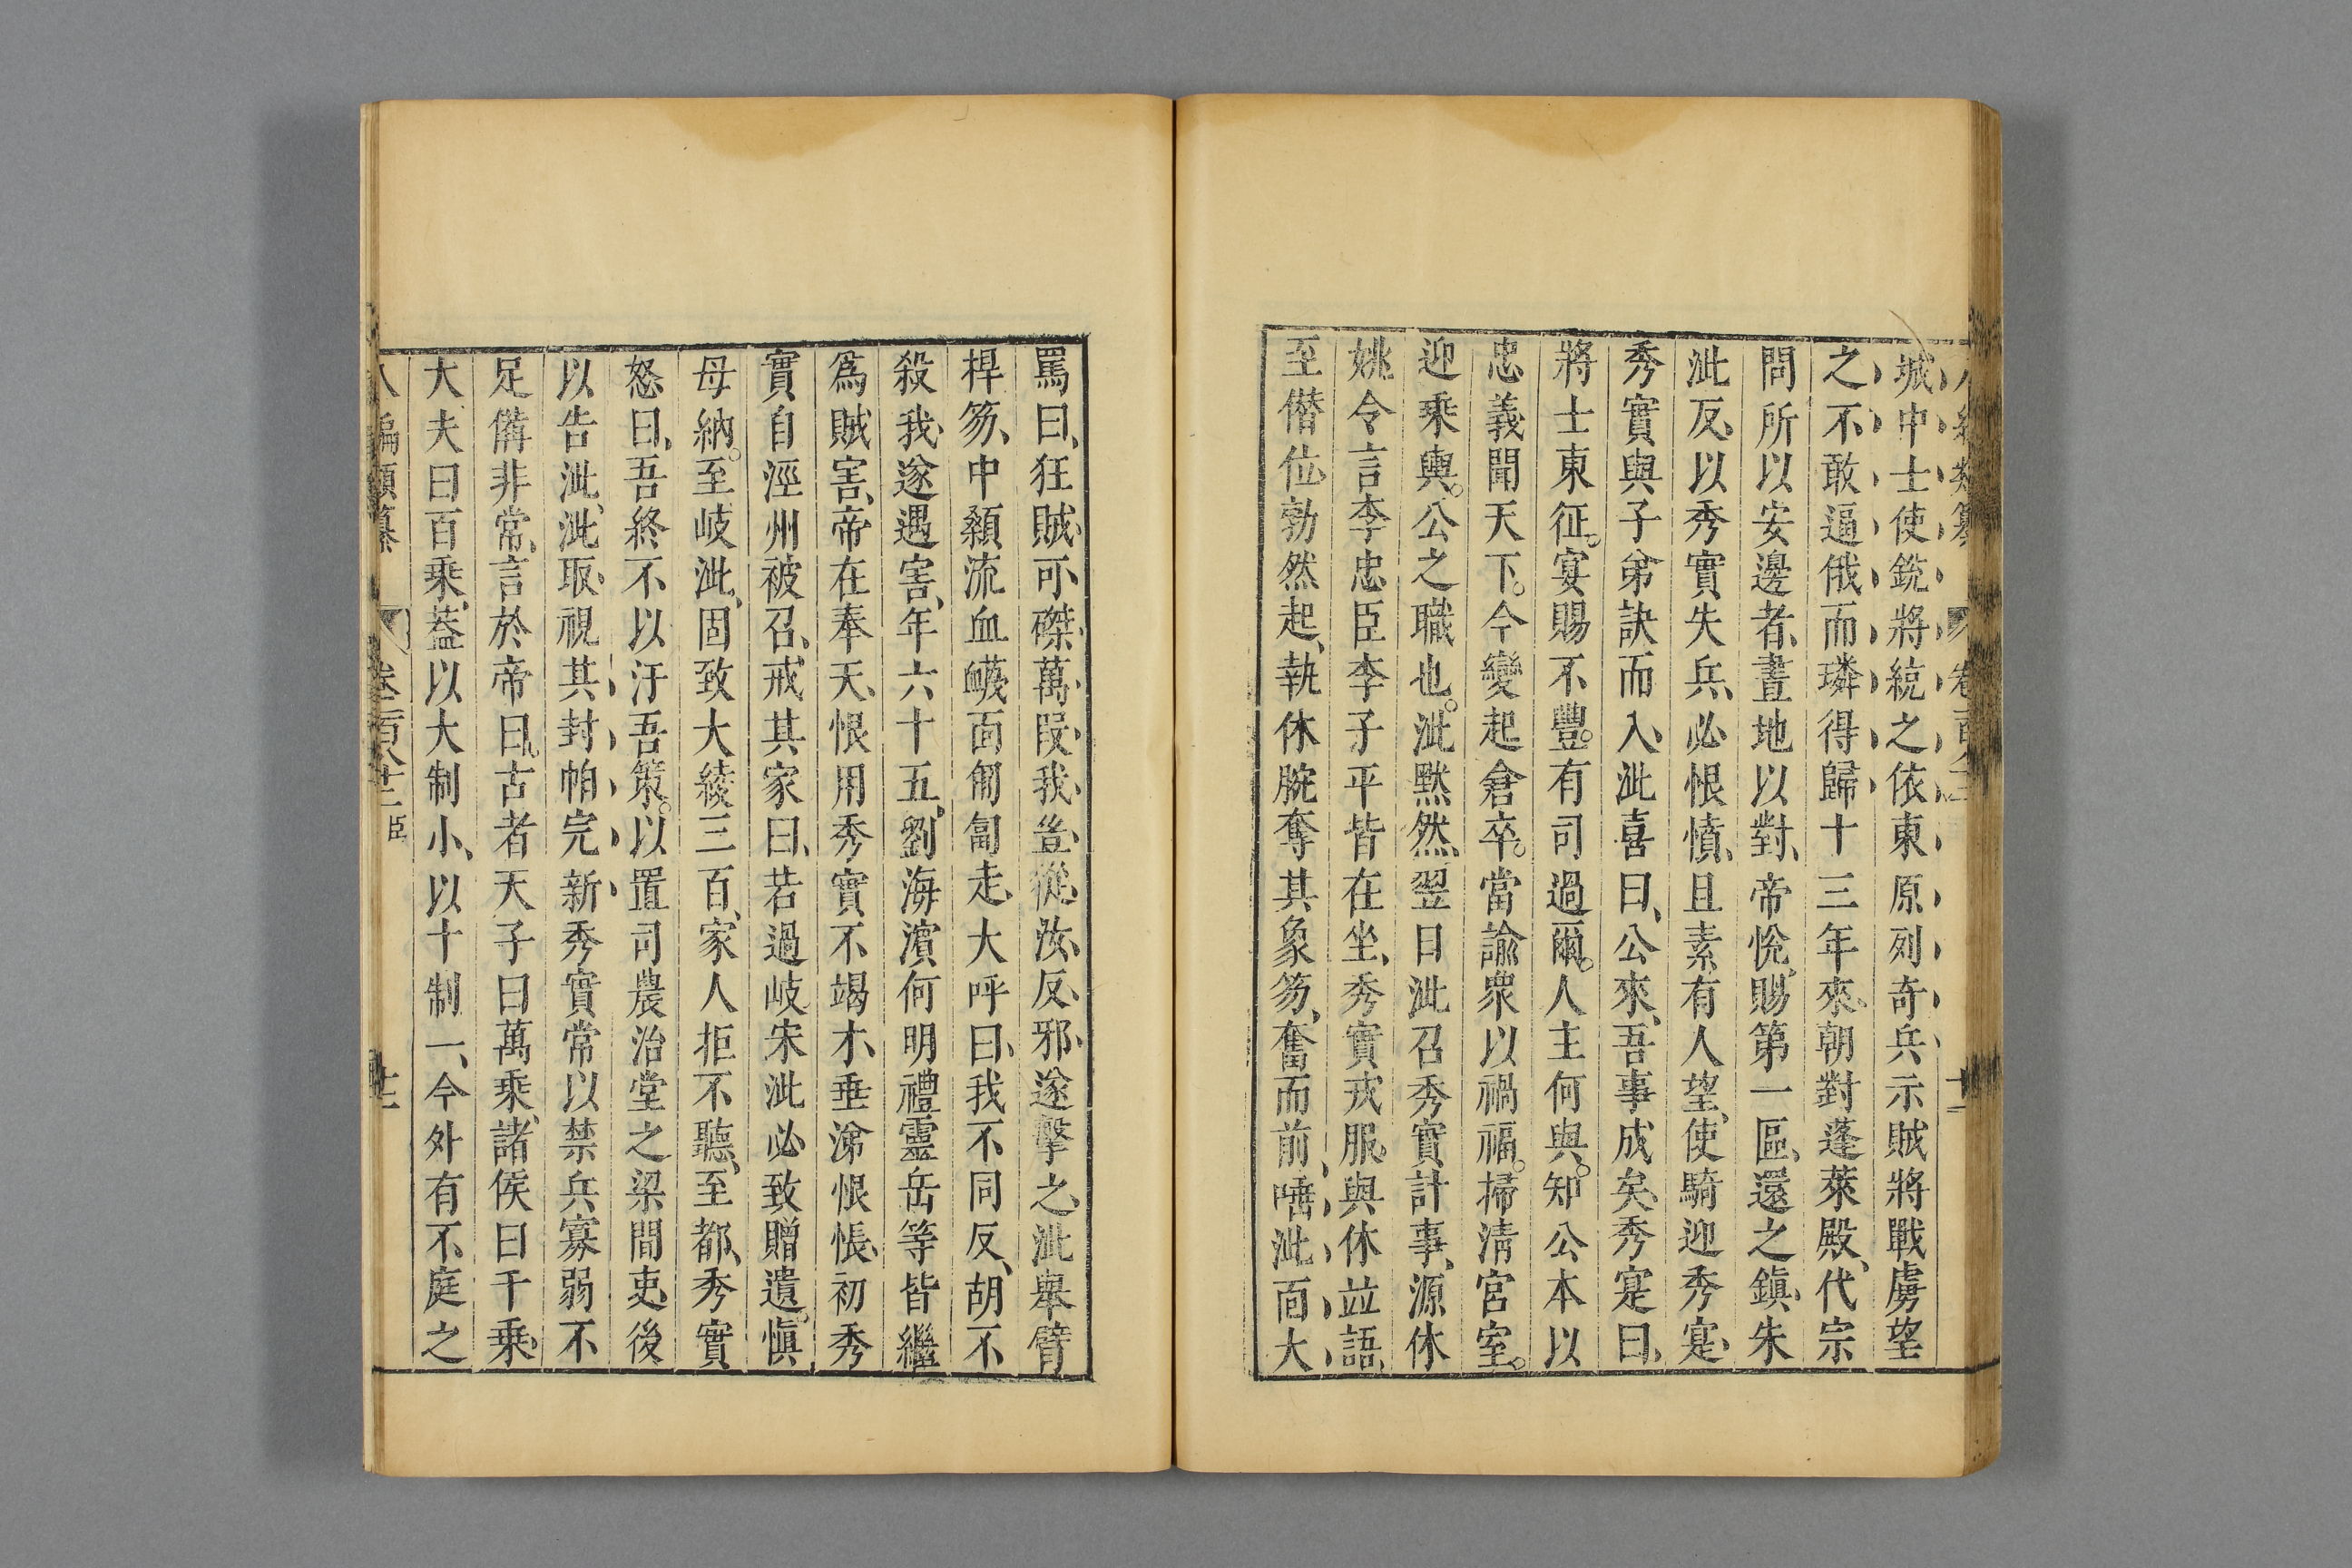 城中士使銳將統之依東原列奇兵示賊將戰虜望
之不敢逼俄而璘得歸十三年來朝對蓬萊殿代宗
問所以安邊者畫地以對帝悅賜第一區還之鎮朱
泚反以秀實失兵必恨憤且素有人望使騎迎秀寔
秀實與子弟訣而入泚喜曰公來吾事成矣秀寔曰
將士東征宴賜不豐有司過爾人主何與知公本以
忠義聞天下今變起倉卒當諭衆以禍福掃清宮室
迎乘輿公之職也泚默然翌日泚召秀實計事源休
姚令言李忠臣李子平皆在坐秀實戎服與休並語
至僭位勃然起執休腕奪其象笏奮而前唾泚面大
罵曰狂賊可磔萬段我豈從汝反邪遂擊之泚舉臂
捍笏中顙流血衊面匍匐走大呼曰我不同反胡不
殺我遂遇害年六十五劉海濵何明禮靈岳等皆繼
爲賊害帝在奉天恨用秀實不竭才垂涕恨悵初秀
實自涇州被召戒其家曰若過岐朱泚必致贈遺愼
毋納至岐泚固致大綾三百家人拒不聽至都秀實
怒曰吾終不以汙吾策以置司農治堂之梁間吏後
以告泚泚取視其封帕完新秀實常以禁兵寡弱不
足備非常言於帝曰古者天子曰萬乘諸侯曰千乘
大夫曰百乘蓋以大制小以十制一今外有不庭之
八編類纂 卷二百八十二 臣